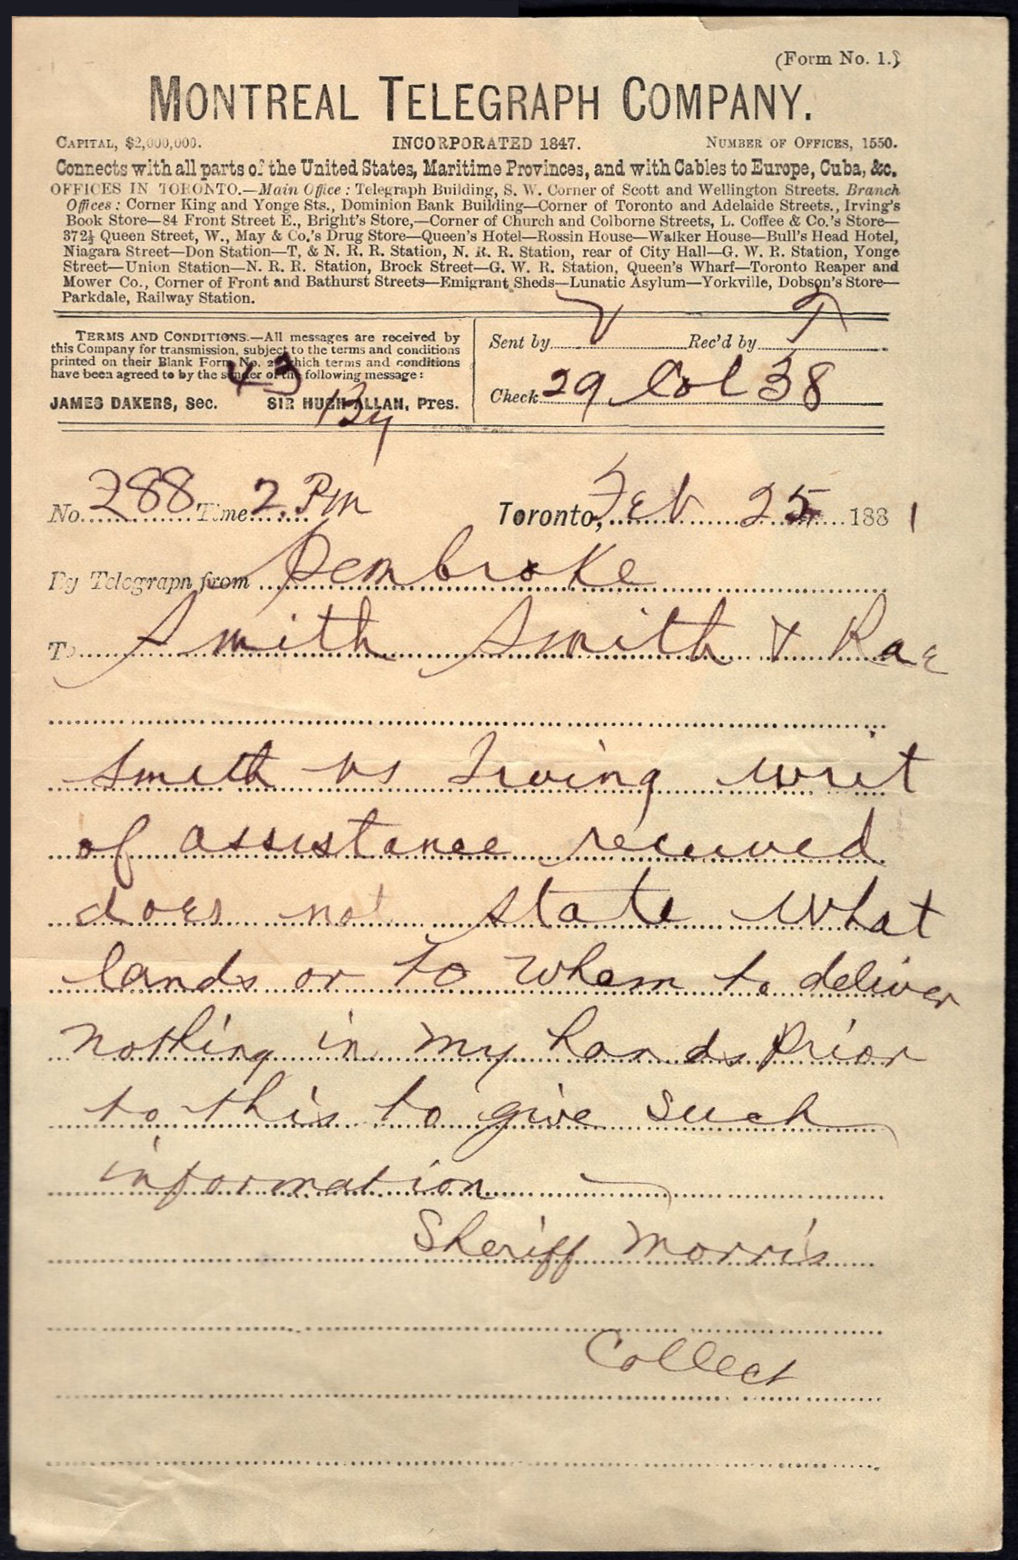 (Form No. 1.)
MONTREAL TELEGRAPH COMPANY.
CAPITAL, $2,000,000. INCORPORATED 1847. NUMBER OF OFFICES, 1550.
Connects with all parts of the United States, Maritime Provinces, and with Cables to Europe, Cuba, &c.
OFFICES IN TORONTO.—Main Office: Telegraph Building, S. W. Corner of Scott and Wellington Streets. Branch
Offices: Corner King and Yonge Sts., Dominion Bank Building—Corner of Toronto and Adelaide Streets., Irving's
Book Store—84 Front Street E., Bright's Store,—Corner of Church and Colborne Streets, L. Coffee & Co.'s Store—
372½ Queen Street, W., May & Co.'s Drug Store—Queen's Hotel—Rossin House—Walker House—Bull's Head Hotel,
Niagara Street—Don Station—T, & N. R. R. Station, N. R. R. Station, rear of City Hall—G. W. R. Station, Yonge
Street—Union Station—N. R. R. Station, Brock Street—G. W. R. Station, Queen's Wharf—Toronto Reaper and
Mower Co., Corner of Front and Bathurst Streets—Emigrant Sheds—Lunatic Asylum—Yorkville, Dobson's Store—
Parkdale, Railway Station.
TERMS AND CONDITIONS.—All messages are received by
this Company for transmission, subject to the terms and conditions
printed on their Blank Form No. 2, which terms and conditions
have been agreed to by the sender of the following message:
43
JAMES DAKERS, Sec. SIR HUGH ALLAN, Pres.
Sent by V Rec'd by T
Check 29 Col 38
No. 288 Time 2. Pm Toronto, Feb 25 1881
By Telegraph from Pembroke
To Smith Smith & Rae
Smith vs Irving writ
of assistance received
does not state what
lands or to whom to deliver
nothing in my hands prior
to this to give such
information
Sheriff Morris
Collect